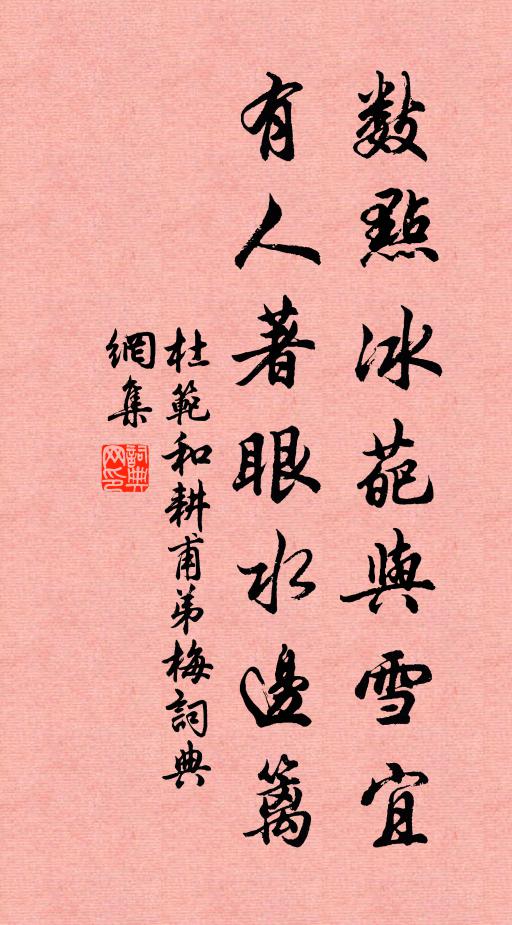 數點冰葩與雪宜
有人著眼水邊籬
杜範和耕甫弟梅詞典
網集
詞典
网印